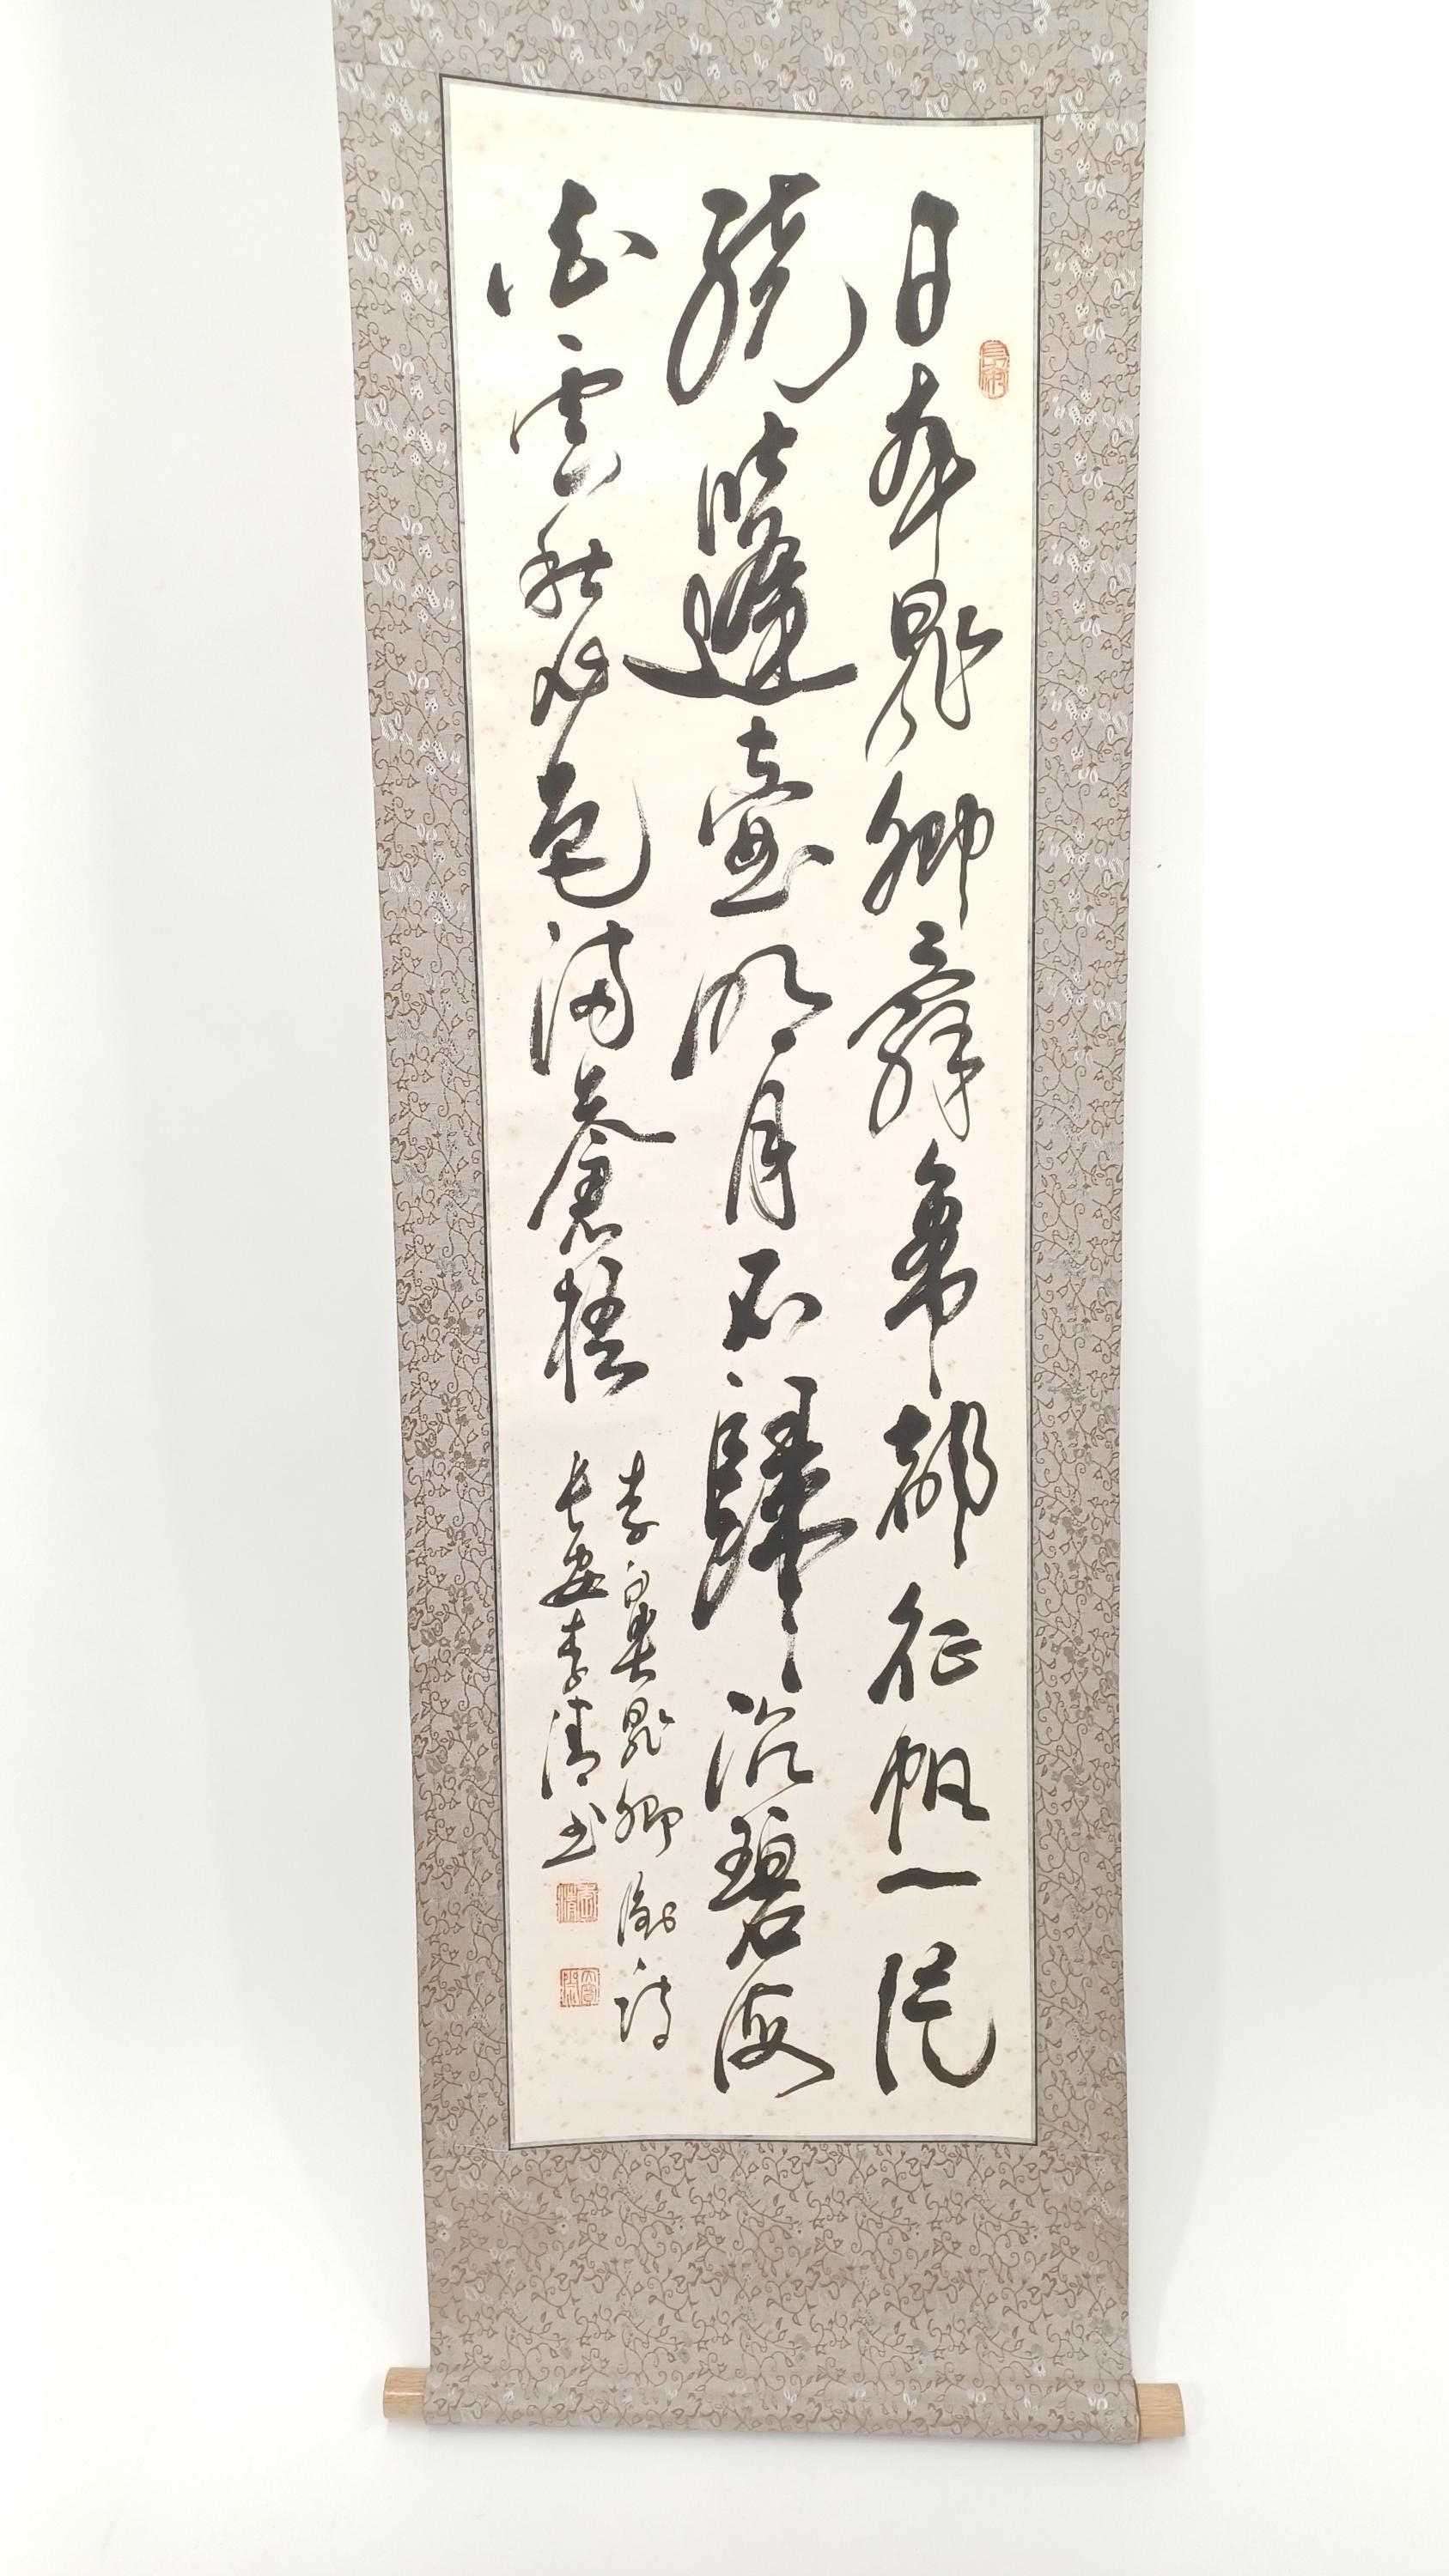 日本晁卿辭帝都征帆一片
繞蓬壺明月不歸沉碧海
白雲愁色滿蒼梧
李白哭晁卿衡詩
長安李清书
李清